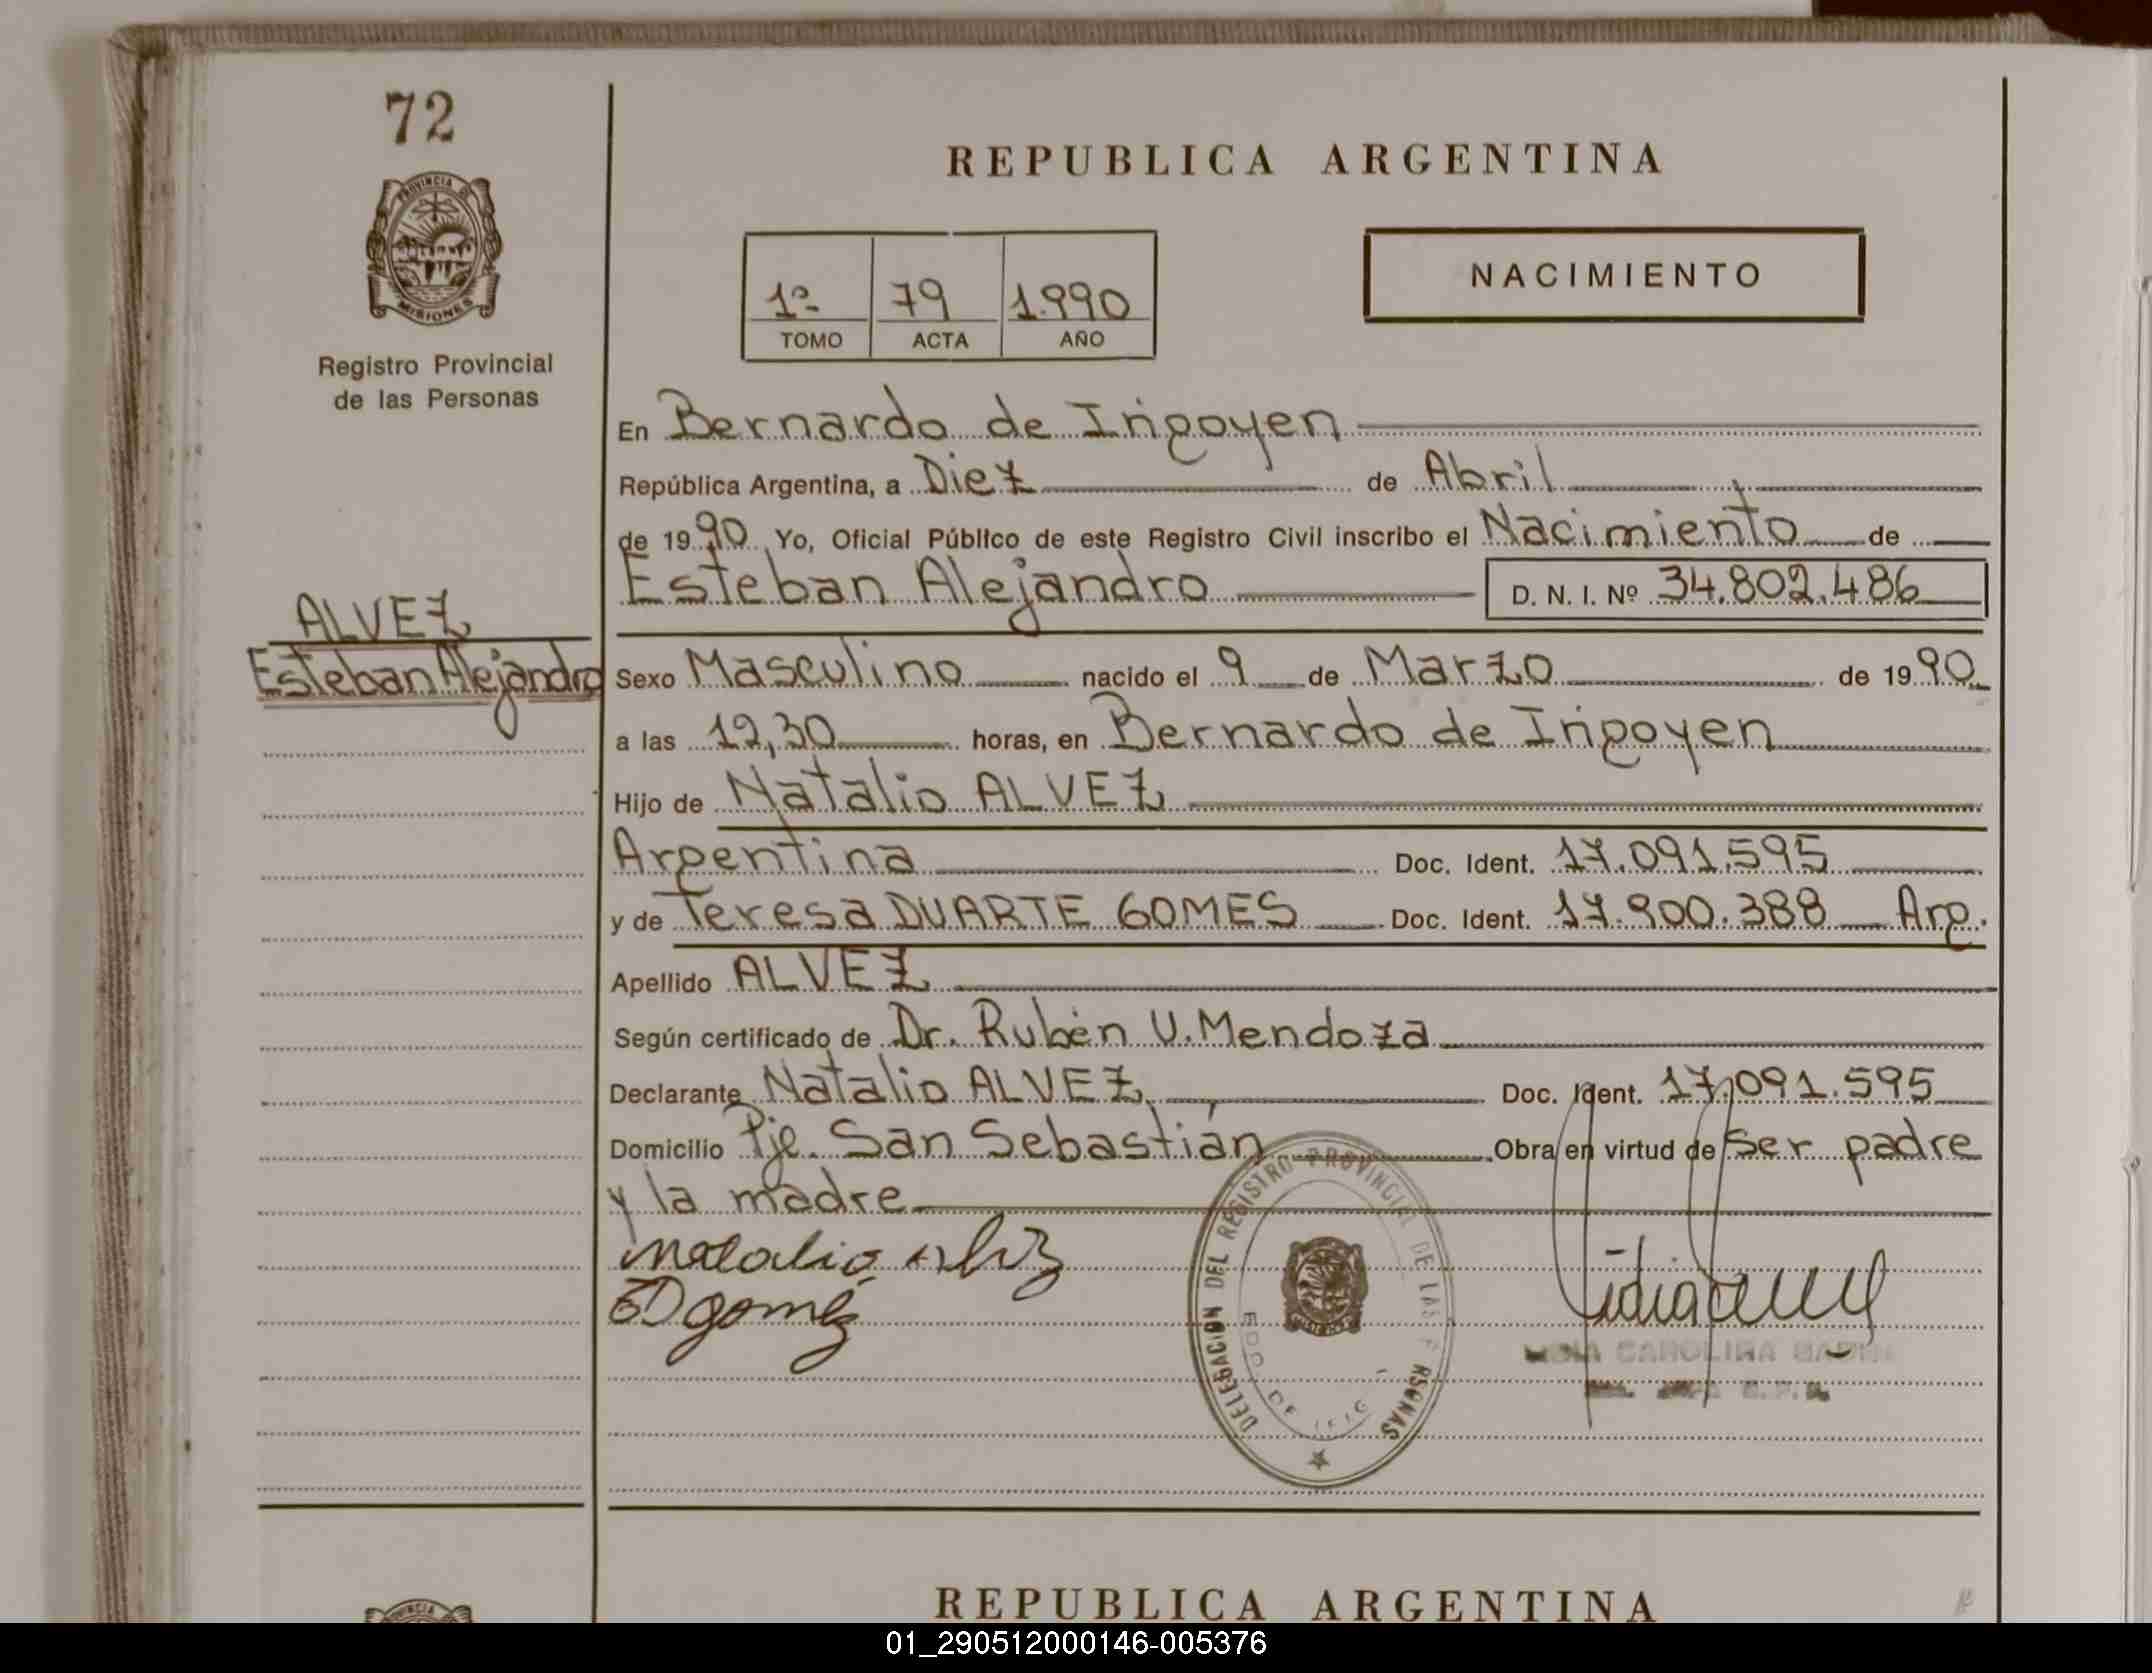 72
PROVINCIA DE
MISIONES
Registro Provincial
de las Personas
REPUBLICA ARGENTINA
1º 79 1.990
TOMO ACTA AÑO
NACIMIENTO
En Bernardo de Irigoyen
República Argentina, a Diez de Abril
de 1990 Yo, Oficial Público de este Registro Civil inscribo el Nacimiento de
Esteban Alejandro D. N. I. Nº 34.802.486
ALVEZ
Esteban Alejandro
Sexo Masculino nacido el 9 de Marzo de 1990
a las 12,30 horas, en Bernardo de Irigoyen
Hijo de Natalio ALVEZ
Argentina Doc. Ident. 17.091.595
y de Teresa DUARTE GOMES Doc. Ident. 17.900.388 Arg.
Apellido ALVEZ
Según certificado de Dr. Rubén U. Mendoza
Declarante Natalio ALVEZ Doc. Ident. 17.091.595
Domicilio Pje. San Sebastián Obra en virtud de ser padre
y la madre
natalio alvez
TD gomez
DELEGACION DEL REGISTRO PROVINCIAL DE LAS PERSONAS
CAROLINA
REPUBLICA ARGENTINA
01_290512000146-005376